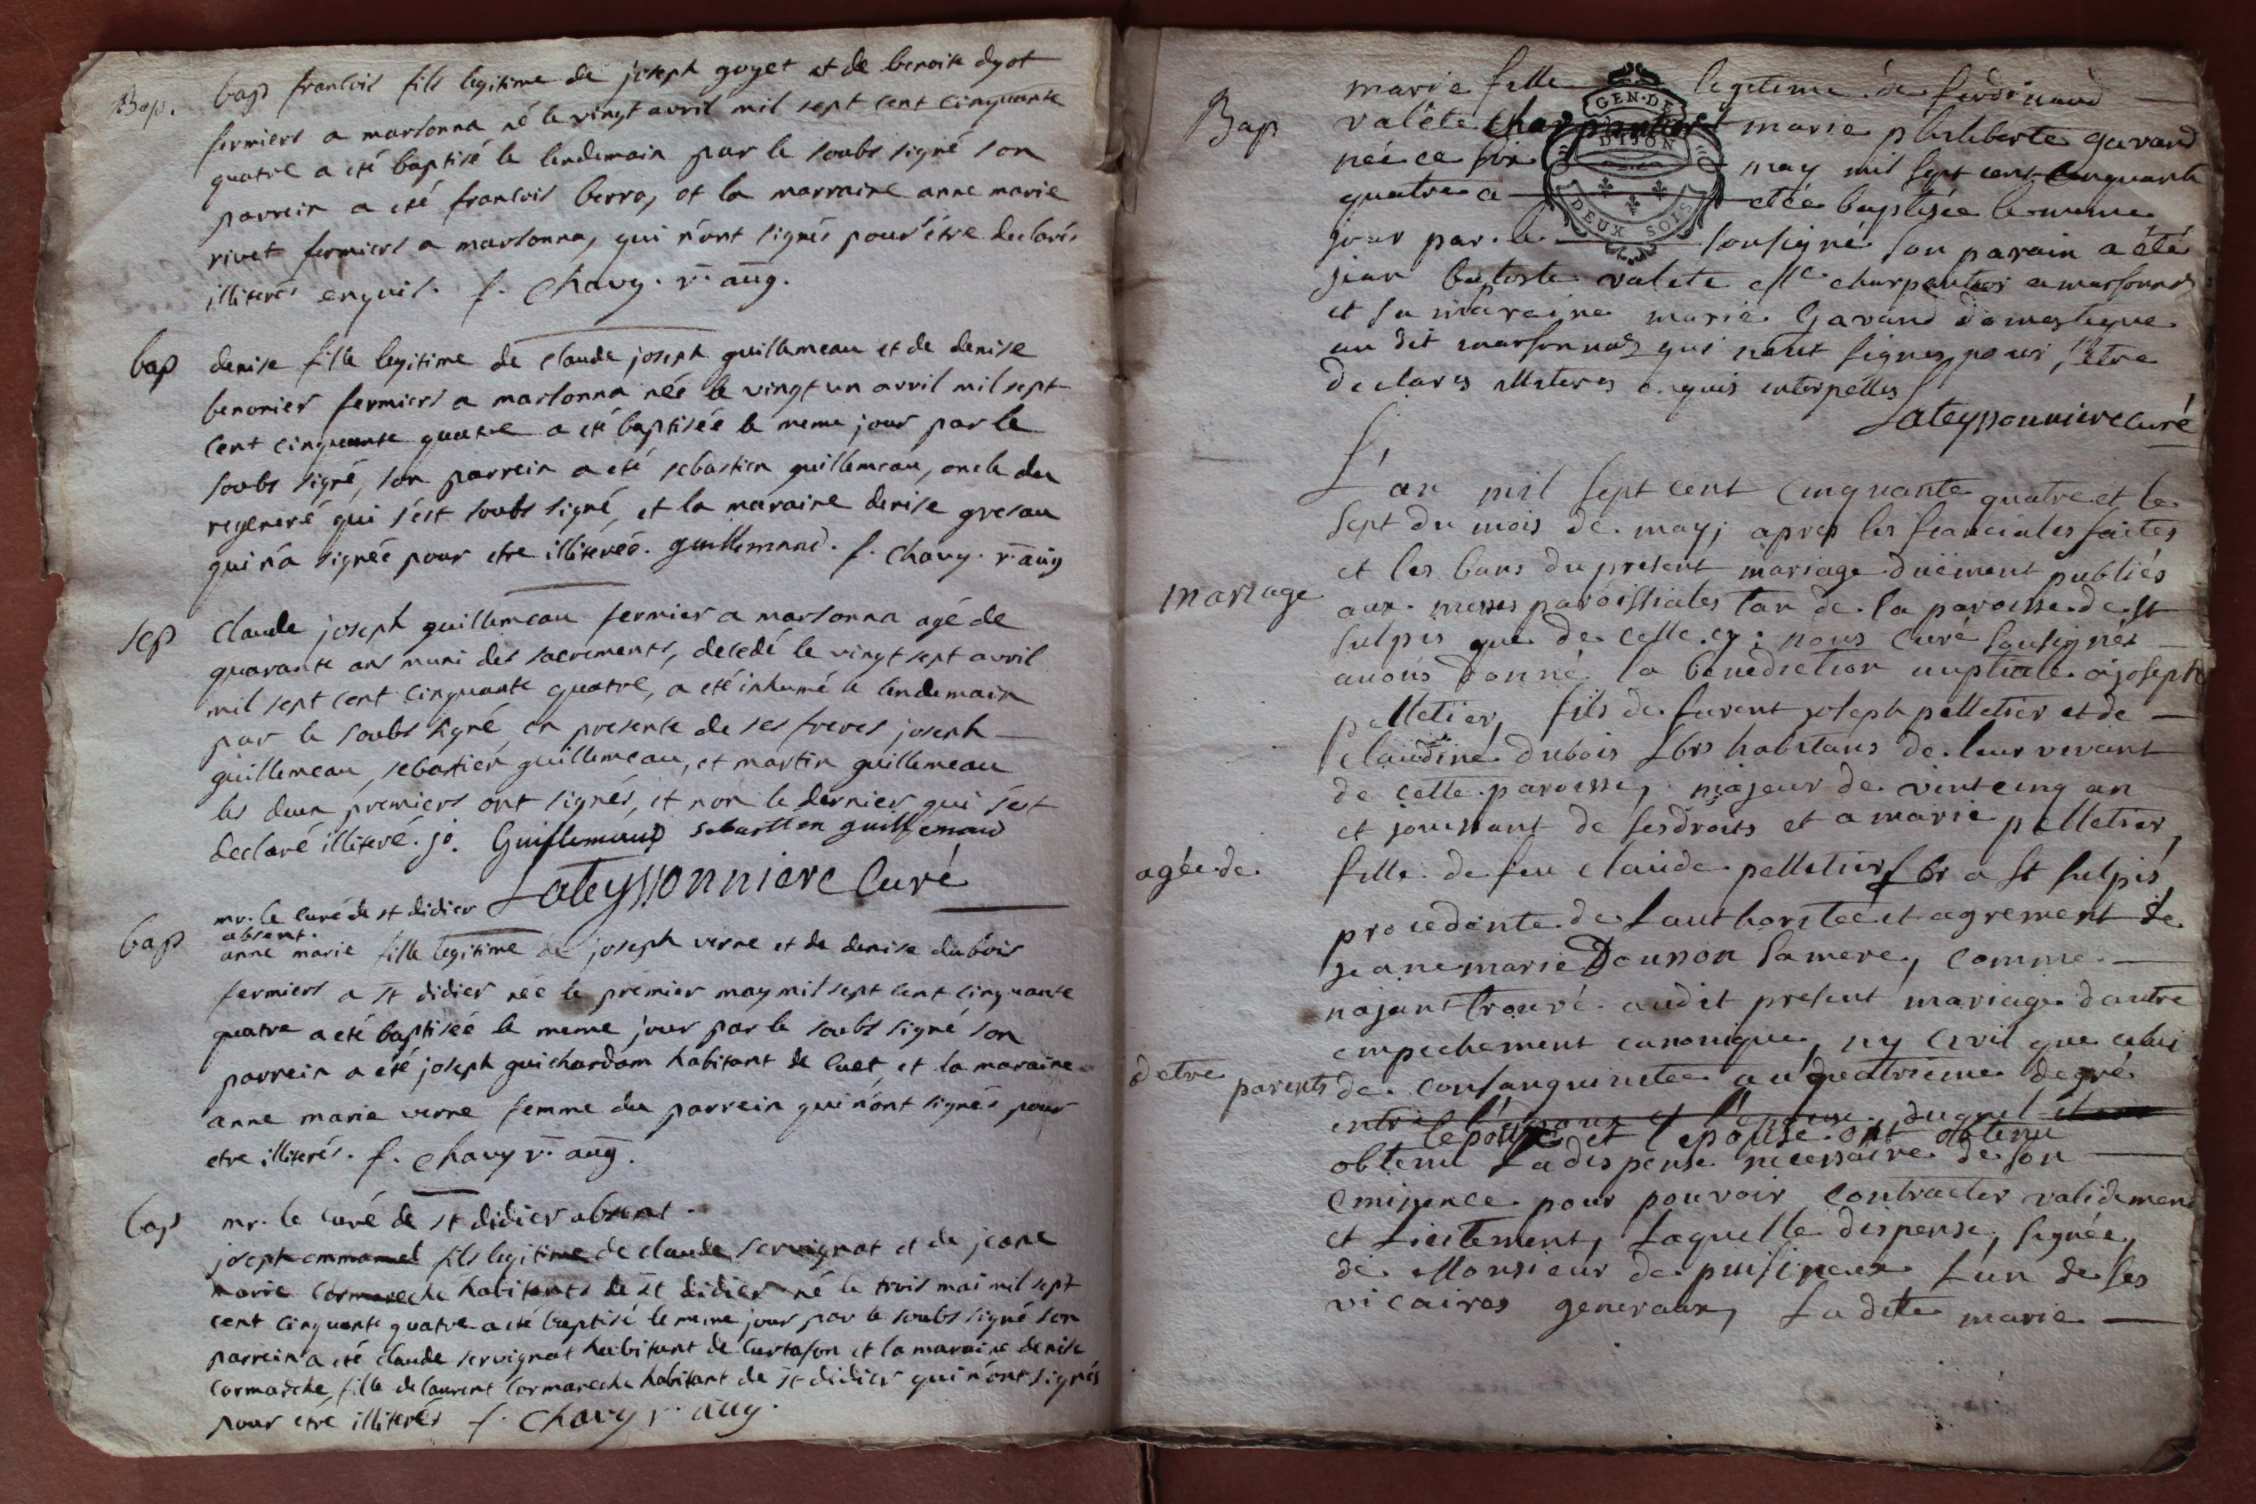 Bap. bap francois fils legitime de joseph goyet et de benoite dyot
fermiers a marsonna né le vingt avril mil sept cent cinquante
quatre a été baptisé le lendemain par le soubs signé son
parrein a été francois berro, et la marraine anne marie
rivet fermiers a marsonna, qui n'ont signés pour être declarés
illiterés enquis. f. chavy. r. aug.
bap denise fille legitime de claude joseph guillemeau et de denise
benonier fermiers a marsonna née le vingt un avril mil sept
cent cinquante quatre a été baptisée le meme jour par le
soubs signé, son parrein a été sebastien guillemeau, oncle du
regeneré qui s'est soubs signé, et la maraine denise gresau
qui n'a signée pour etre illiterée. guillemand. f. chavy. r. aug
sep claude joseph guillemeau fermier a marsonna agé de
quarante ans muni des sacrements, decedé le vingt sept avril
mil sept cent cinquante quatre, a été inhumé le lendemain
par le soubs signé, en presente de ses freres joseph
guillemeau, sebastien guillemeau, et martin guillemeau
les deux premiers ont signés, et non le dernier qui s'est
declaré illiteré. jo. Guillemaud sebastien guillemaud
Lateyssonniere Curé
mr. le curé de st didier
absent.
bap anne marie fille legitime de joseph verne et de denise dubois
fermiers a st didier née le premier may mil sept cent cinquante
quatre a été baptisée le meme jour par le soubs signé, son
parrein a été joseph guichardam habitant de cuet et la maraine
anne marie verne femme du parrein qui n'ont signés pour
etre illiterés. f. chavy r. aug.
bap mr. le curé de st didier absent.
joseph emmanuel fils legitime de claude servignat et de jeane
marie cormareche habitants de st didier né le trois mai mil sept
cent cinquante quatre a été baptisé le meme jour par le soubs signé son
parrein a été claude servignat habitant de curtafon et la maraine denise
cormareche, fille de laurent cormareche habitant de st didier qui n'ont signés
pour etre illiterés f. chavy r. aug.
marie fille legitime de ferdinand
Bap valéte charpentier marie philiberte gavand
née ce six may mil sept cent cinquante
quatre a etée baptisée le meme
jour par le sousigné son parain a été
jean batiste valete Me charpentier a marsonnas
et sa maraine marie gavand domestique
au dit marsonnas qui n'ont signes pour, s'etre
declares illiteres enquis interpelles
Lateyssonniere Curé
GEN. DE
DIJON
DEUX SOLS
L'an mil sept cent cinquante quatre et le
sept du mois de may, apres les fiancialles faites
et les bans du present mariage duëment publiés
mariage aux messes paroissiales tan de la paroisse de st
sulpis que de celle cy: nous curé sousignés
avons donné la benediction nuptiale a joseph
pelletier, fils de furent joseph pelletier et de
claudine dubois Lbrs habitans de leur vivant
de cette paroisse, majeur de vint cinq an
et jouissant de ses droits et a marie pelletier,
agée de fille de feu claude pelletier Lbr a st sulpis
procedente de l'authoritée et agrement de
jeane marie Dounon sa mere, comme
n'ajant trouvé audit present mariage d'autre
empechement canonique, ny civil que celui
d'etre parents de consanguinitée au quatrieme degré
entre l'époux et l'épouse, duquel
l'epoux et l'epouse ont obtenu
obtenu la dispense necessaire de son
eminence pour pouvoir contracter validement
et licitement, laquelle dispense, signée,
de Monsieur de puisigneux l'un de ses
vicaires generaux, la dite marie